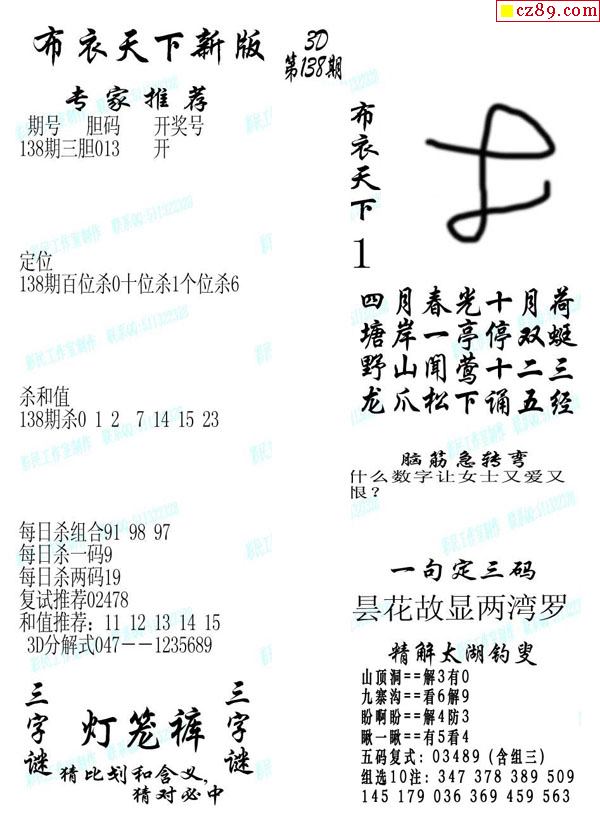 cz89.com
布衣天下新版
3D
第138期
专家推荐
期号 胆码 开奖号
138期三胆013 开
定位
138期百位杀0十位杀1个位杀6
杀和值
138期杀0 1 2 7 14 15 23
每日杀组合91 98 97
每日杀一码9
每日杀两码19
复试推荐02478
和值推荐：11 12 13 14 15
3D分解式047--1235689
三字谜
灯笼裤
三字谜
猜比划和含义，
猜对必中
布衣天下
1
四月春光十月荷
塘岸一亭停双蜓
野山闻莺十二三
龙爪松下诵五经
脑筋急转弯
什么数字让女士又爱又
恨？
一句定三码
昙花故显两湾罗
精解太湖钓叟
山顶洞==解3有0
九寨沟==看6解9
盼啊盼==解4防3
瞅一瞅==有5看4
五码复式：03489（含组三）
组选10注：347 378 389 509
145 179 036 369 459 563
彩民工作室制作 联系QQ:511322320